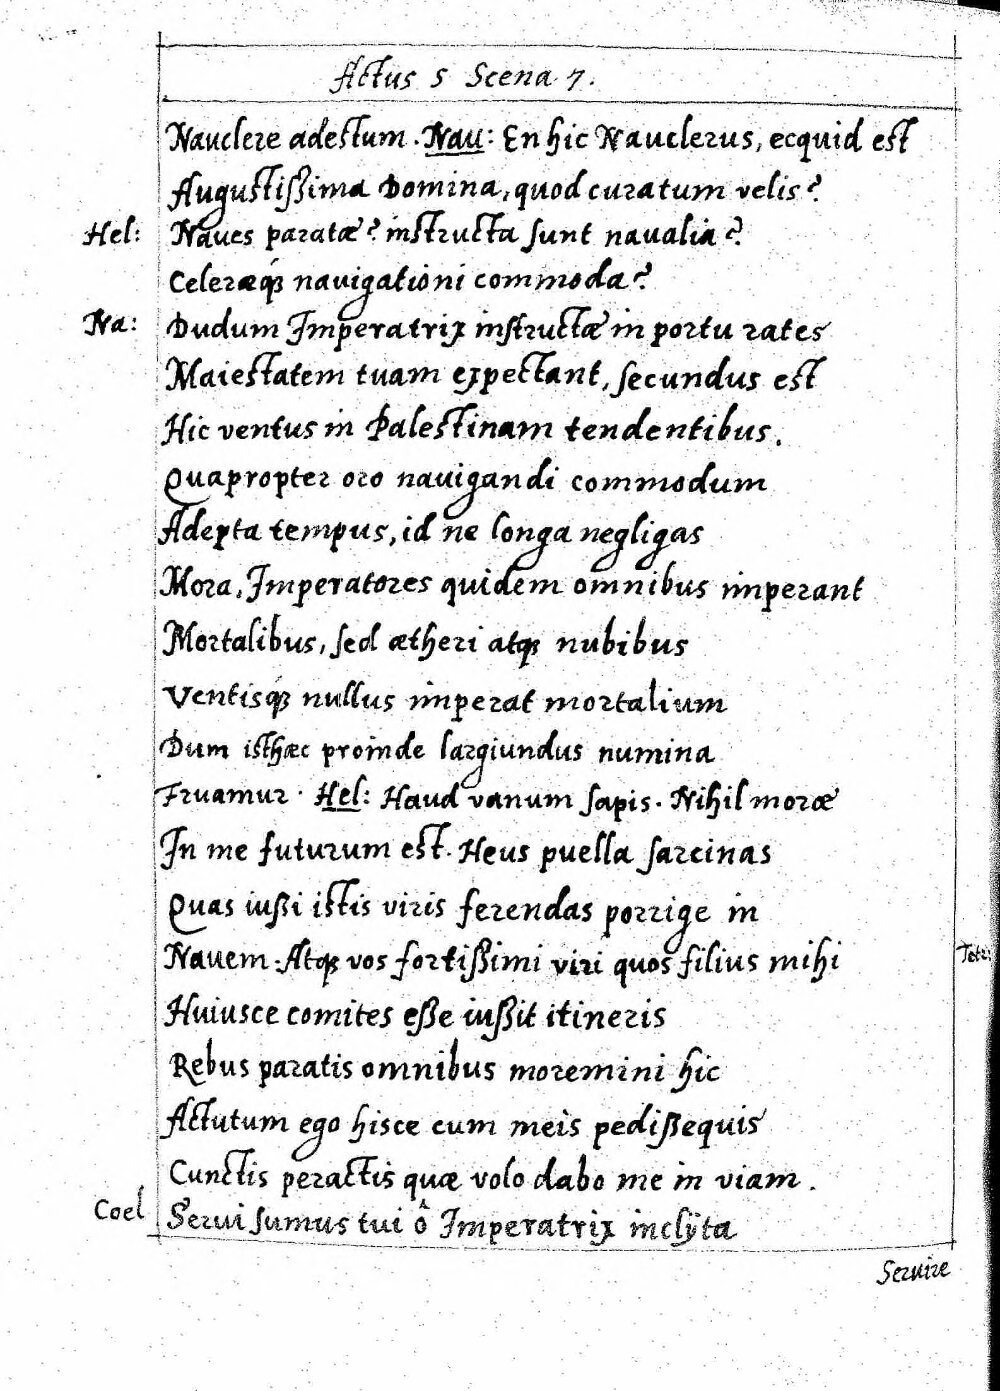 Actus 5 Scena 7.
Nauclere adestum. Nau: En hic Nauclerus, ecquid est
Augustißima Domina, quod curatum velis?
Hel: Naues paratæ? instructa sunt naualia?
Celeræq; nauigationi commoda?
Na: Dudum Imperatrix instructæ in portu rates
Maiestatem tuam expectant, secundus est
Hic ventus in Palestinam tendentibus.
Quapropter oro nauigandi commodum
Adepta tempus, id ne longa negligas
Mora, Imperatores quidem omnibus imperant
Mortalibus, sed ætheri atq; nubibus
Ventisq; nullus imperat mortalium
Dum isthæc proinde largiundus numina
Fruamur. Hel: Haud vanum sapis. Nihil moræ
In me futurum est. Heus puella sarcinas
Quas iußi istis viris ferendas porrige in
Nauem. Atq; vos fortißimi viri quos filius mihi
Tetr:
Huiusce comites eße iußit itineris
Rebus paratis omnibus moremini hic
Actutum ego hisce cum meis pedißequis
Cunctis peractis quæ volo dabo me in viam.
Coel Serui sumus tui ô Imperatrix inclÿta
Seruire